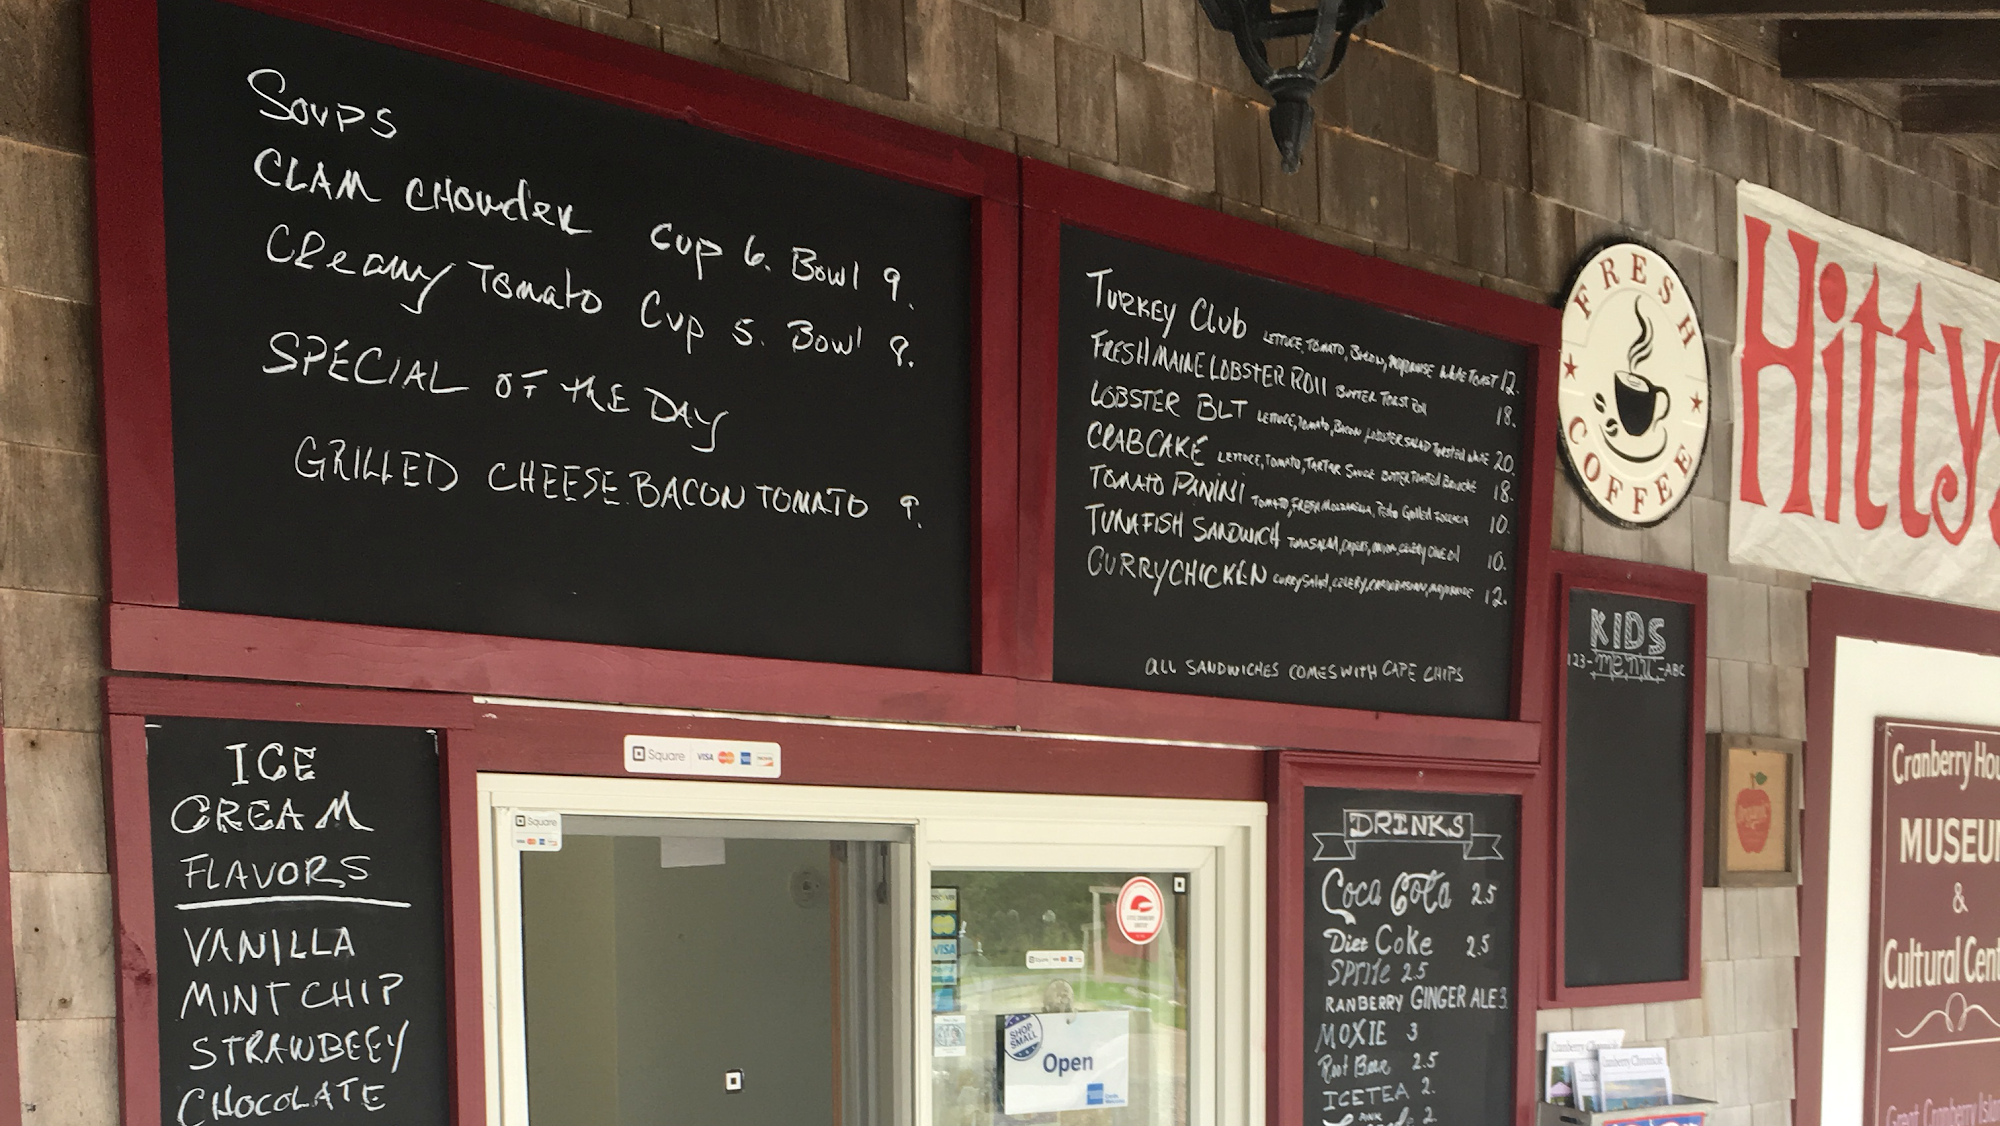 Soups
CLAM CHOWdER Cup 6. Bowl 9.
CReamy Tomato Cup 5. Bowl 8.
SPECIAL OF the DAY
GRILLED CHEESE BACON TOMATO 9.
TURKEY Club LETTUCE, TOMATO, BACON, MAYONAISE WHITE TOAST 12.
FRESH MAINE LOBSTER ROll BUTTER TOAST Roll 18.
LOBSTER BLT LETTUCE, TOMATO, BACON, LOBSTER SALAD TOASTED WHITE 20.
CRABCAKE LETTUCE, TOMATO, TARTAR SAUCE BUTTER TOASTED BRIOCHE 18.
TOMATO PANINI TOMATO, FRESH MOZZARELLA, Pesto Grilled FOCCACIA 10.
TUNAFISH SANDWICH TUNA SALAD, CAPERS, ONION, CELERY OLIVE Oil 10.
CURRY CHICKEN CURRY SALAD, CELERY, MAYONAISE 12.
ALL SANDWICHES COMES WITH CAPE CHIPS
FRESH
COFFEE
Hittys
KIDS
123-menu-ABC
ICE
CREAM
FLAVORS
VANILLA
MINT CHIP
STRAWBEEY
CHOCOLATE
Square VISA
Square
DISCOVER
VISA
Square
SHOP
SMALL
Open
DRINKS
Coca Cola 2.5
Diet Coke 2.5
SPRITE 2.5
RANBERRY GINGER ALE 3
MOXIE 3
Root Beer 2.5
ICETEA 2.
2.
Organic
Cranberry Hou
MUSEUM
&
Cultural Cent
Great Cranberry Islan
Cranberry Chronicle
Cranberry Chronicle